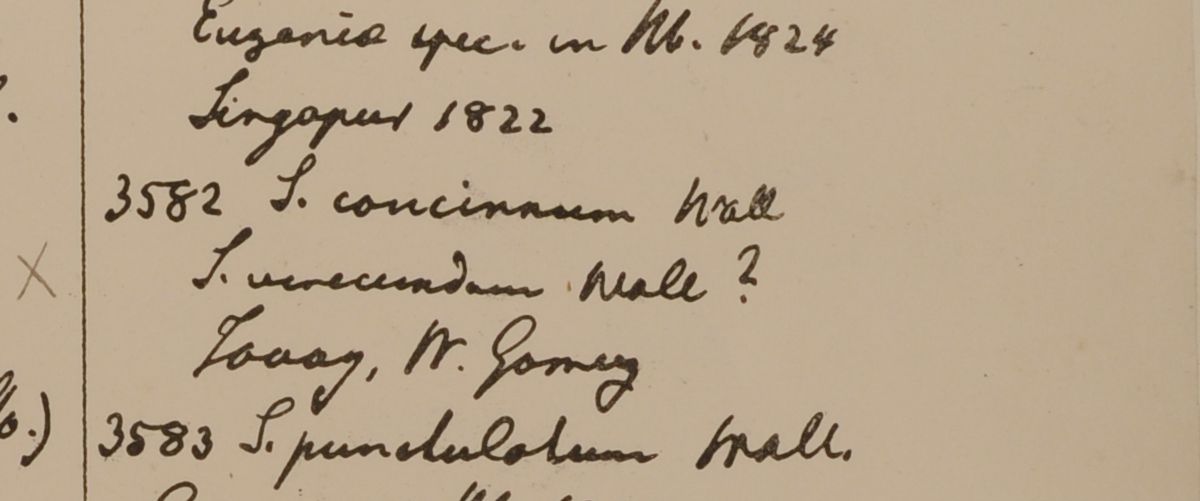 Eugenia spec. in Hb. 1824
Singapur 1822
3582 S. concinnum Wall
S. verecundum Wall ?
X
Tavoy, W. Gomez
b.) 3583 S. punctulatum Wall.